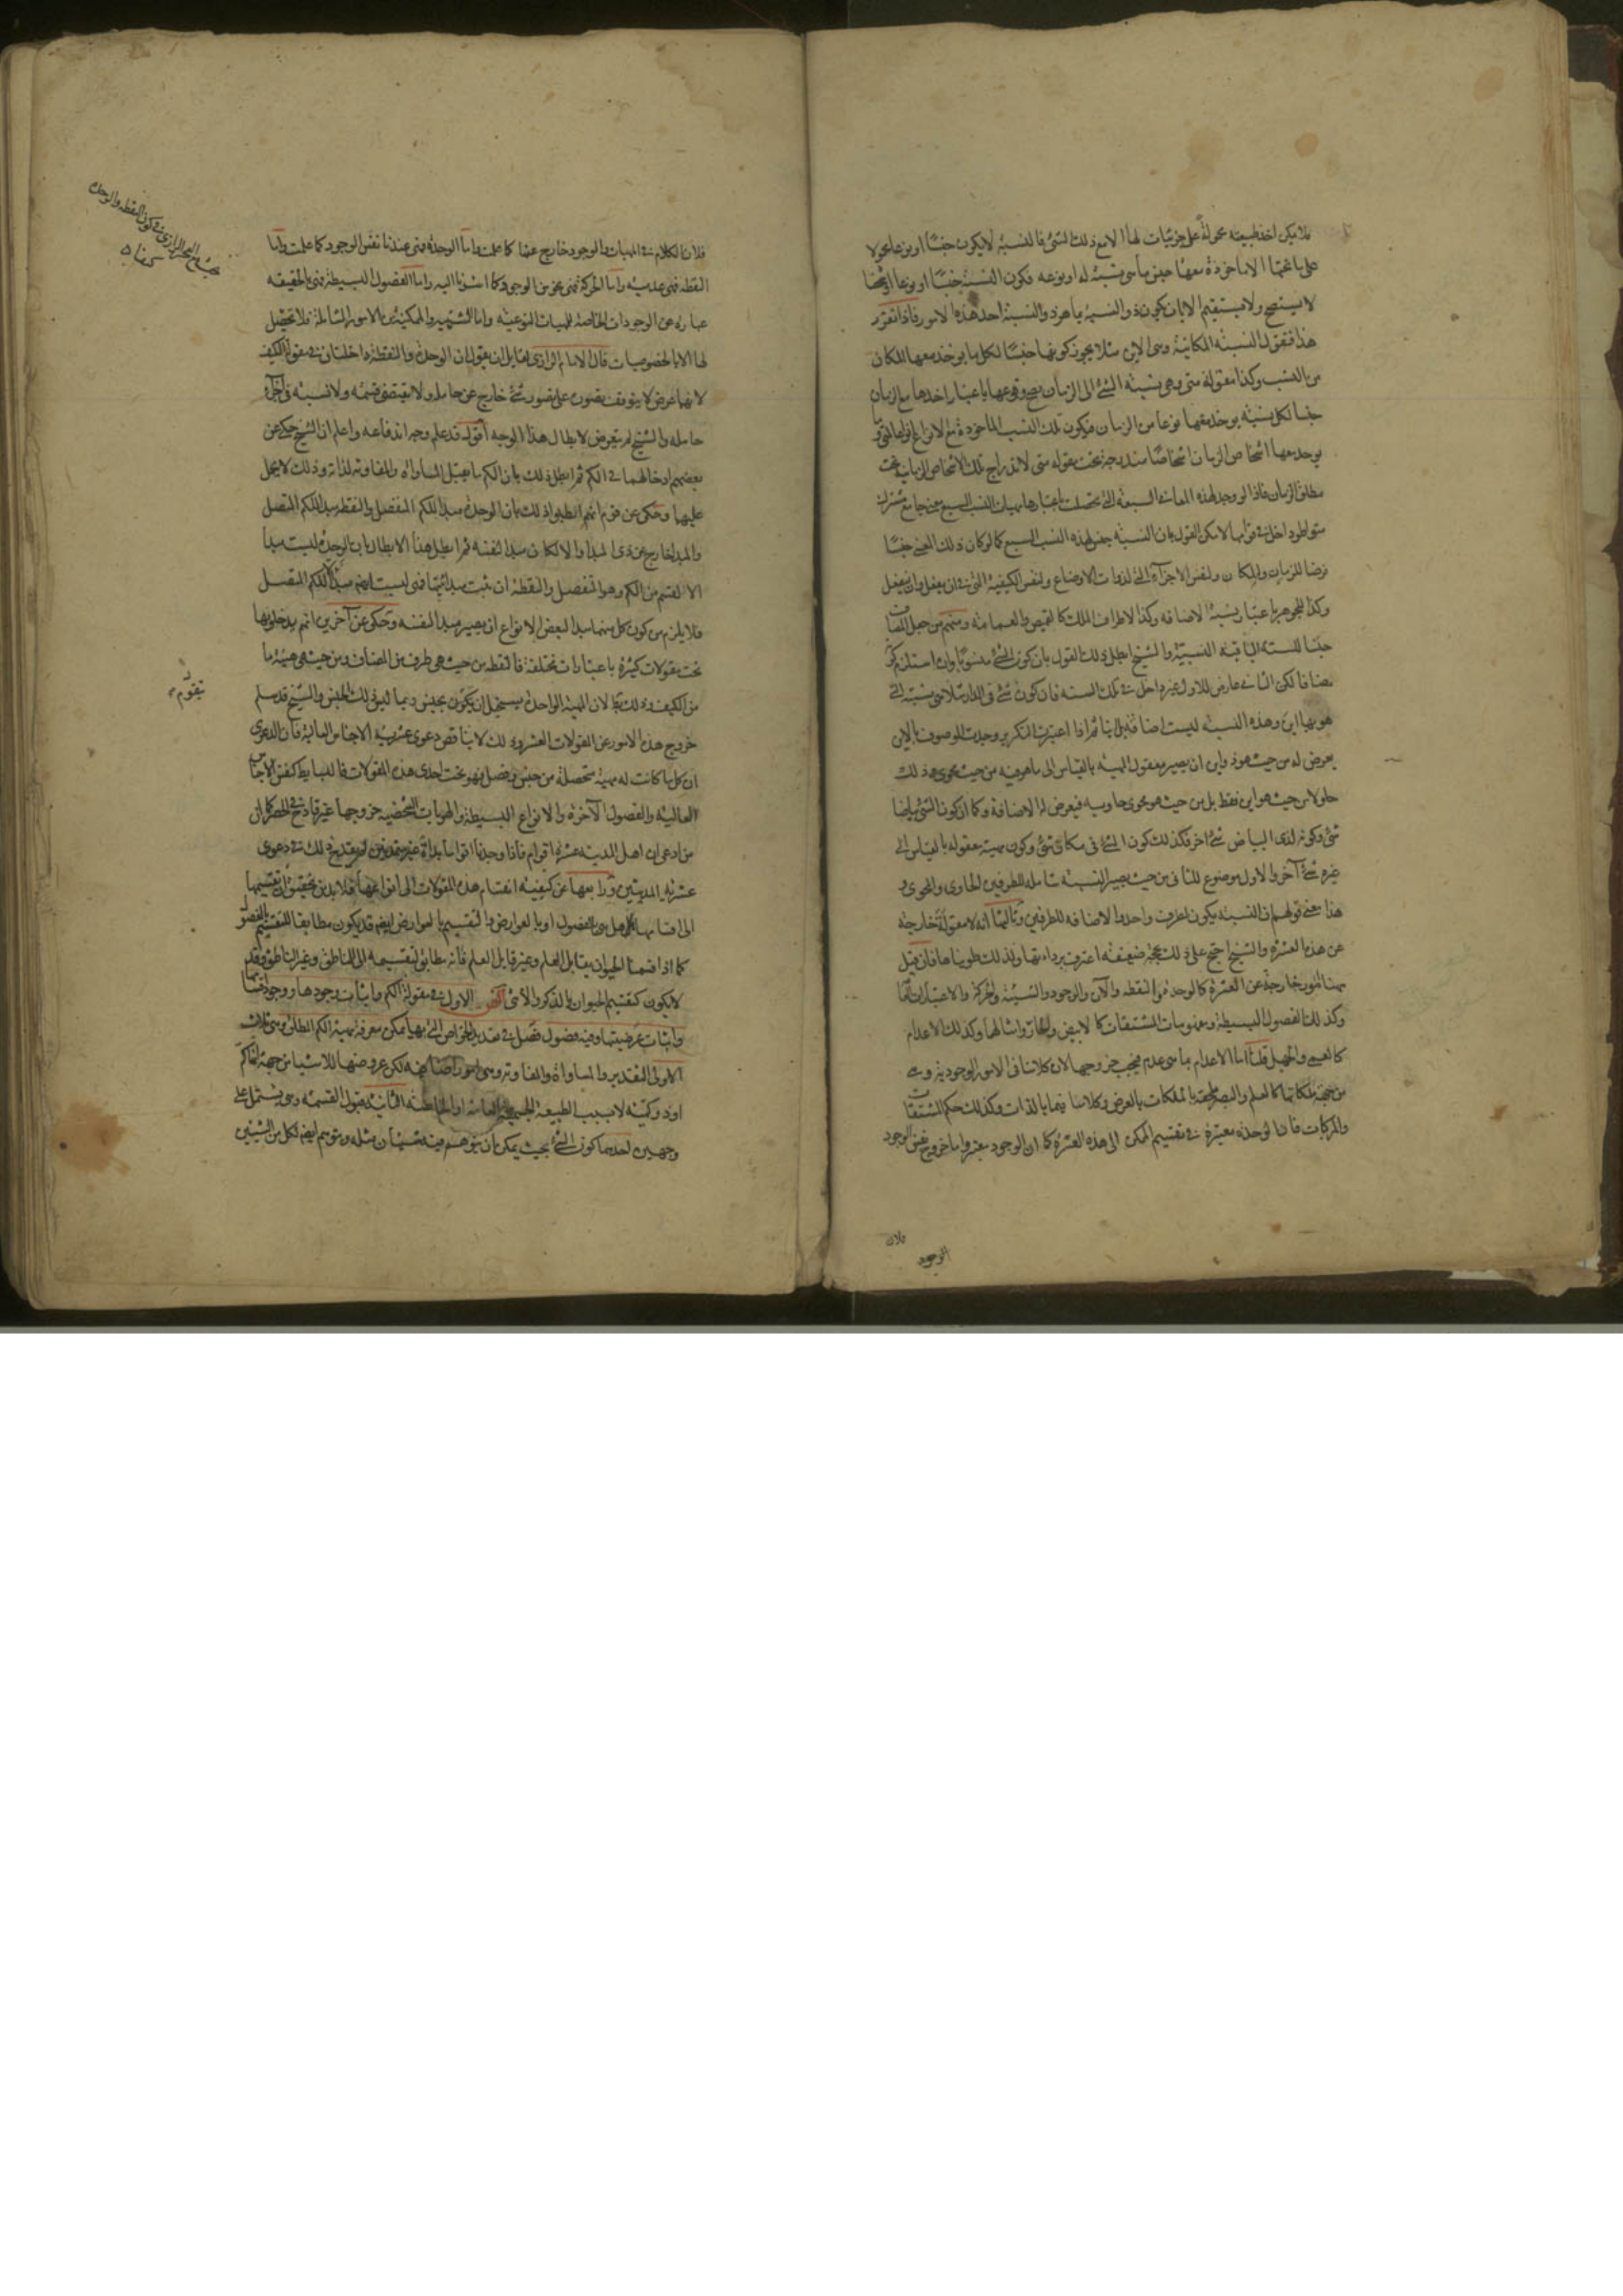 فلا يمكن اخذ طبيعته محمولة على جزئيات لها الا مع ذلك الشئ فالنسبة لا يكون جنسا او نوعا محمولا
على ما تحتها الا ماخوذة معها جنس ما هى نسبة له او نوعه فكون النسبة جنسا او نوعا او شخصا
لا يستصح ولا يستقيم الا بان يكون ذو النسبة بما هو ذو النسبة احد هذه الامور فاذا تقرر
هذا فنقول النسبة المكانية وهى الاين مثلا يجوز كونها جنسا لكل ما يوخذ معها المكان
من النسب وكذا مقولة متى وهى نسبة الشئ الى الزمان يصح وقوعها باعتبار اخذها مع الزمان
جنسا لكل نسبة يوخذ معها نوعا من الزمان فيكون تلك النسب الماخوذة مع الانواع انواعا لمتى وما
يوخذ معها اشخاص الزمان اشخاصا مندرجة تحت مقولة متى لاندراج تلك الاشخاص الزمانية تحت
مطلق الزمان فاذا لو وجد لهذه المعانى السبعة التى تحصلت باعتبارها مهيات النسب السبع معنى جامع مشترك
متواطؤ داخل فى قوامها لامكن القول بان النسبة جنس لهذه النسب السبع كما لو كان ذلك المعنى جنسا
ايضا للزمان والمكان ولنفس الاجزاء التى لذوات الاوضاع ولنفس الكيفية التى فى ان يفعل وان ينفعل
وكذا للجوهر باعتبار نسبة الاضافه وكذا لاطراف الملك كالقميص والعمامة ومنهم من جعل المضاف
جنسا للستة الباقية النسبية والشيخ ابطل ذلك القول بان كون الشئ منسوبا وان استلزم كونه
مضافا لكن الثانى عارض للاول غير داخل فى تلك الستة فان كون شئ فى الدار مثلا هى نسبته التى
هو بها اين وهذه النسبة ليست اضافة بل اينا ثم اذا اعتبرت التكرير وجدت الموصوف بالاين
يعرض له من حيث هو ذو اين ان يصير معقول المهية بالقياس الى ما هو فيه من حيث هو محوى وذلك
حاو لا من حيث هو اين فقط بل من حيث هو محوى حاويه فيعرض له الاضافة وكما ان كون الشئ بياضا
شئ وكونه لذى البياض شئ اخر فكذلك كون الشئ فى مكان شئ وكون مهيته معقوله بالقياس الى
غيره شئ آخر والاول موضوع للثانى من حيث يصير النسبة شامله للطرفين الحاوى والمحوى و
هذا معنى قولهم ان النسبة يكون لطرف واحد والاضافه للطرفين وثالثها انه لا مقولة خارجة
عن هذه العشرة والشيخ احتج على ذلك بحجة ضعيفة اعترف برداءتها ولذلك طويناها فان قيل
ههنا امور خارجة عن العشرة كالوحدة والنقطه والآن والوجود والشيئية والحركة والاعتبارات العامة
وكذلك الفصول البسيطة ومفهومات المشتقات كالابيض والحار وامثالها وكذلك الاعدام
كالعمى والجهل قلنا اما الاعدام بما هى عدم فيجب خروجها لان كلامنا فى الامور الوجودية وهى
من جهة ملكاتها كالعلم والبصر ملحقه بالملكات بالعرض وكلامنا فيما بالذات وكذلك حكم المشتقات
والمركبات فان الوحدة معتبرة فى تقسيم الممكن الى هذه العشرة كما ان الوجود معتبر واما خروج نفس الوجود
فلان
الوجود
فلان الكلام فى المهيات والوجود خارج عنها كما علمت واما الوحدة فهى عندنا نفس الوجود كما علمت واما
النقطة فهى عدمية واما الحركة فهى نحو من الوجود كما اشرنا اليه واما الفصول البسيطة فهى بالحقيقه
عبارة عن الوجودات الخاصة للمهيات النوعية واما الشيئية والممكنية من الامور الشاملة فلا تحصل
لها الا بالخصوصيات قال الامام الرازى لقايل ان يقول ان الوحدة والنقطة داخلتان فى مقولة الكيف
لانهما عرض لا يتوقف تصوره على تصور شئ خارج عن حامله ولا يقتضى قسمة ولا نسبة فى اجزاء
حامله والشيخ لم يتعرض لابطال هذا الوجه اقول قد علم وجه اندفاعه واعلم ان الشيخ حكى عن
بعضهم ادخالهما فى الكم ثم ابطل ذلك بان الكم ما يقبل المساواة والمفاوته لذاته وذلك لا يحمل
عليهما وحكى عن قوم انهم ابطلوا ذلك بان الوحدة مبدأ للكم المنفصل والنقطه مبدأ للكم المتصل
والمبدا خارج عن ذى المبدا والا لكان مبدأ لنفسه ثم ابطل هذا الابطال بان الوحدة ليست مبدأ
الا لقسم من الكم وهو المنفصل والنقطة ان ثبت مبدائيتها فهى ليست ايضا مبدأ الا للكم المتصل
فلا يلزم من كون كل منهما مبدا لبعض الانواع ان يصير مبدا لنفسه وحكى عن آخرين انهم يدخلونها
تحت مقولات كثيرة باعتبارات مختلفة فالنقطه من حيث هى طرف من المضاف ومن حيث هى هيئة ما
من الكيف وذلك بط لان المهية الواحدة يستحيل ان يتقوم بجنس وبما ليس ذلك الجنس والشيخ قد سلم
خروج هذه الامور عن المقولات العشر وذلك لا يناقض دعوى عشرية الاجناس العالية فان الدعوى
ان كل ما كانت له مهية متحصلة من جنس وفصل فهو تحت احدى هذه المقولات فالبسايط كنفس الاجناس
العاليه والفصول الآخرة والانواع البسيطة والهويات الشخصية خروجها غير قادح فى الحصر كما ان
من ادعى ان اهل المدينه عشرة اقوام فاذا وجدنا اقواما بداة غير متمدنين لم يقدح ذلك فى دعوى
عشرية المدينيين ورابعها عن كيفية انقسام هذه المقولات الى انواعها فلابد من تحقيق ان تقسيمها
الى اقسامها هل هى بالفصول او بالعوارض والتقسيم بالعوارض ايضا قد يكون مطابقا للتقسيم بالفصول
كما اذا قسمنا الحيوان بقابل العلم وغير قابل العلم فانه مطابق لتقسيمه الى الناطق وغير الناطق وقد
لا يكون كتقسيم الحيوان بالذكر والأنثى الفن الاول فى مقولة الكم واثبات وجودها ووجود اقسامها
واثبات عرضيتها وفيه فصول فصل فى تعديد الخواص التى بها يمكن معرفة مهية الكم المطلق وهى ثلاث
الاولى التقدير والمساواة والمفاوته وهى امور اضافيه لكن عروضها للاشيا من جهة انها كم
او ذو كمية لا بسبب الطبيعة الجسمية العامة او الخاصة الثانية قبول القسمه وهى يشتمل على
وجهين احدهما كون الشئ بحيث يمكن ان يتوهم فيه شيئان مثله ويتوهم ايضا لكل من الشيئين
يتقوم